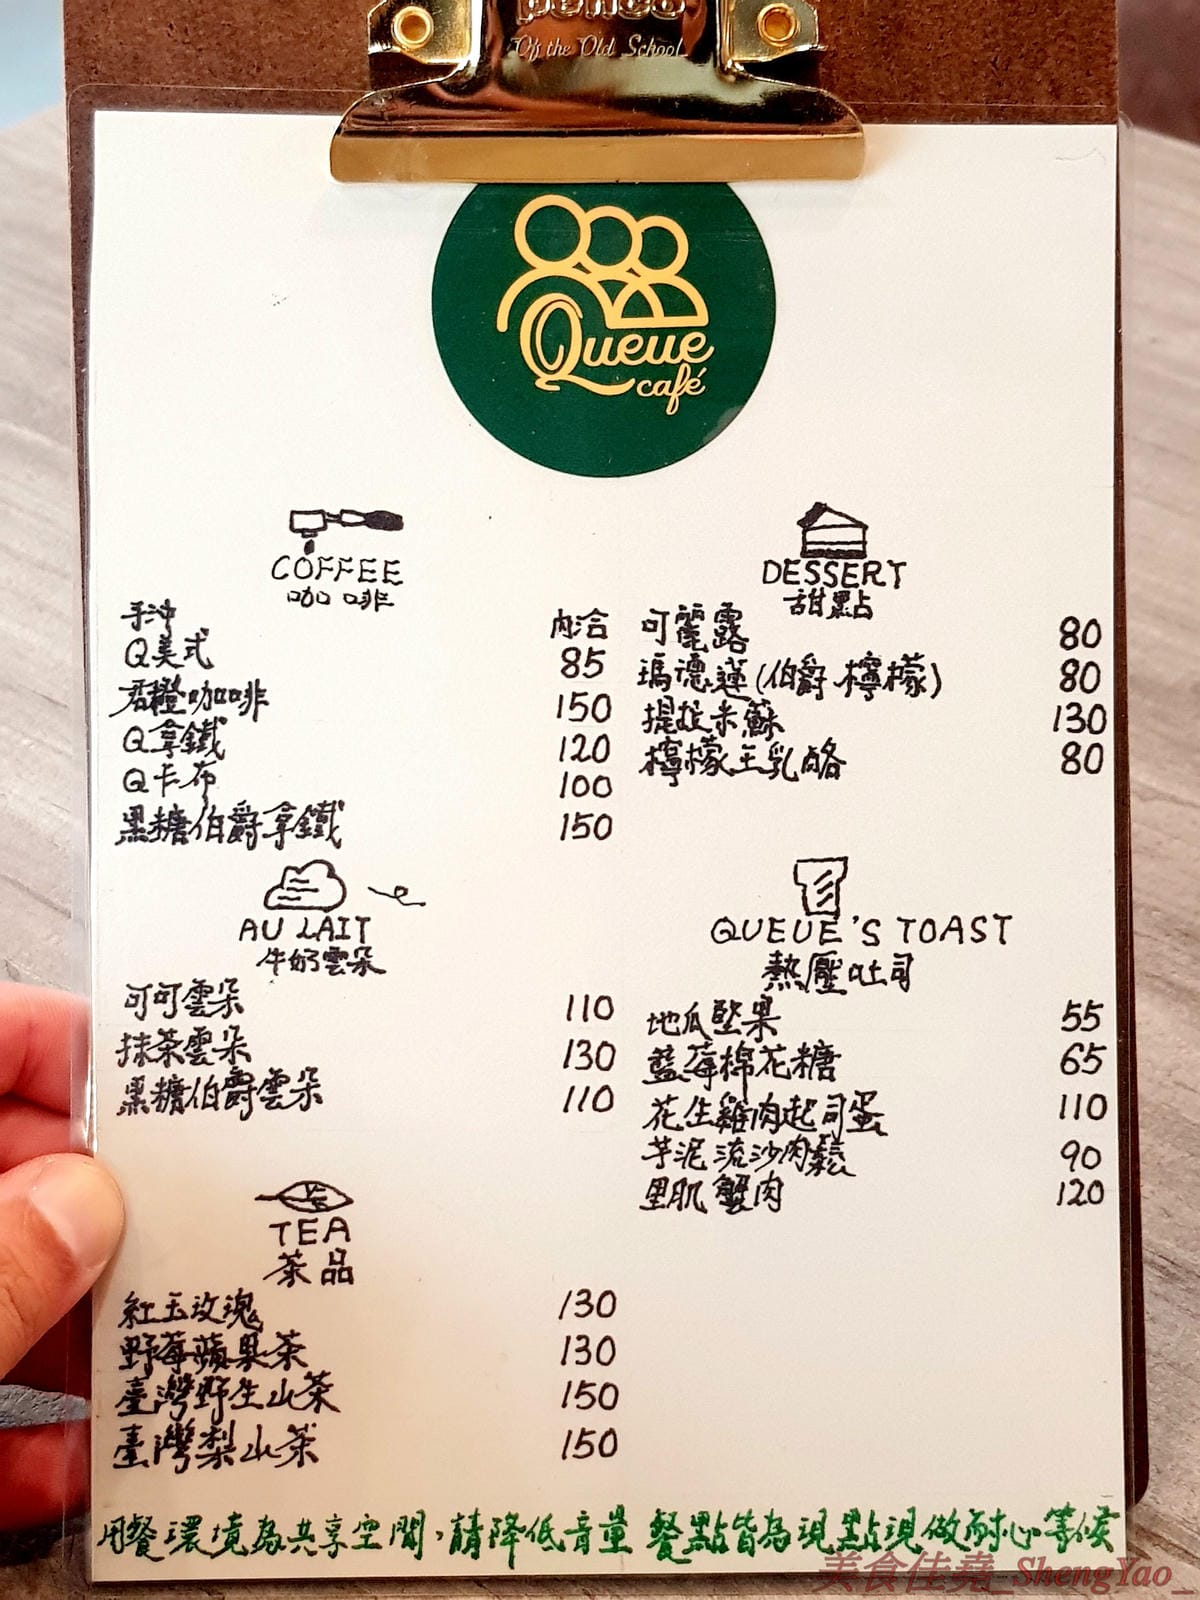 penco
Of the Old School
Queue
café
COFFEE
咖啡
手沖 內洽
Q美式 85
香橙咖啡 150
Q拿鐵 120
Q卡布 100
黑糖伯爵拿鐵 150
AU LAIT
牛奶雲朵
可可雲朵 110
抹茶雲朵 130
黑糖伯爵雲朵 110
TEA
茶品
紅玉玫瑰 130
野莓蘋果茶 130
臺灣野生山茶 150
臺灣梨山茶 150
DESSERT
甜點
可麗露 80
瑪德蓮(伯爵.檸檬) 80
提拉米蘇 130
檸檬生乳酪 80
QUEUE'S TOAST
熱壓吐司
地瓜堅果 55
藍莓棉花糖 65
花生雞肉起司蛋 110
芋泥流沙肉鬆 90
里肌蟹肉 120
用餐環境為共享空間,請降低音量 餐點皆為現點現做耐心等候
美食佳堯_ShengYao_